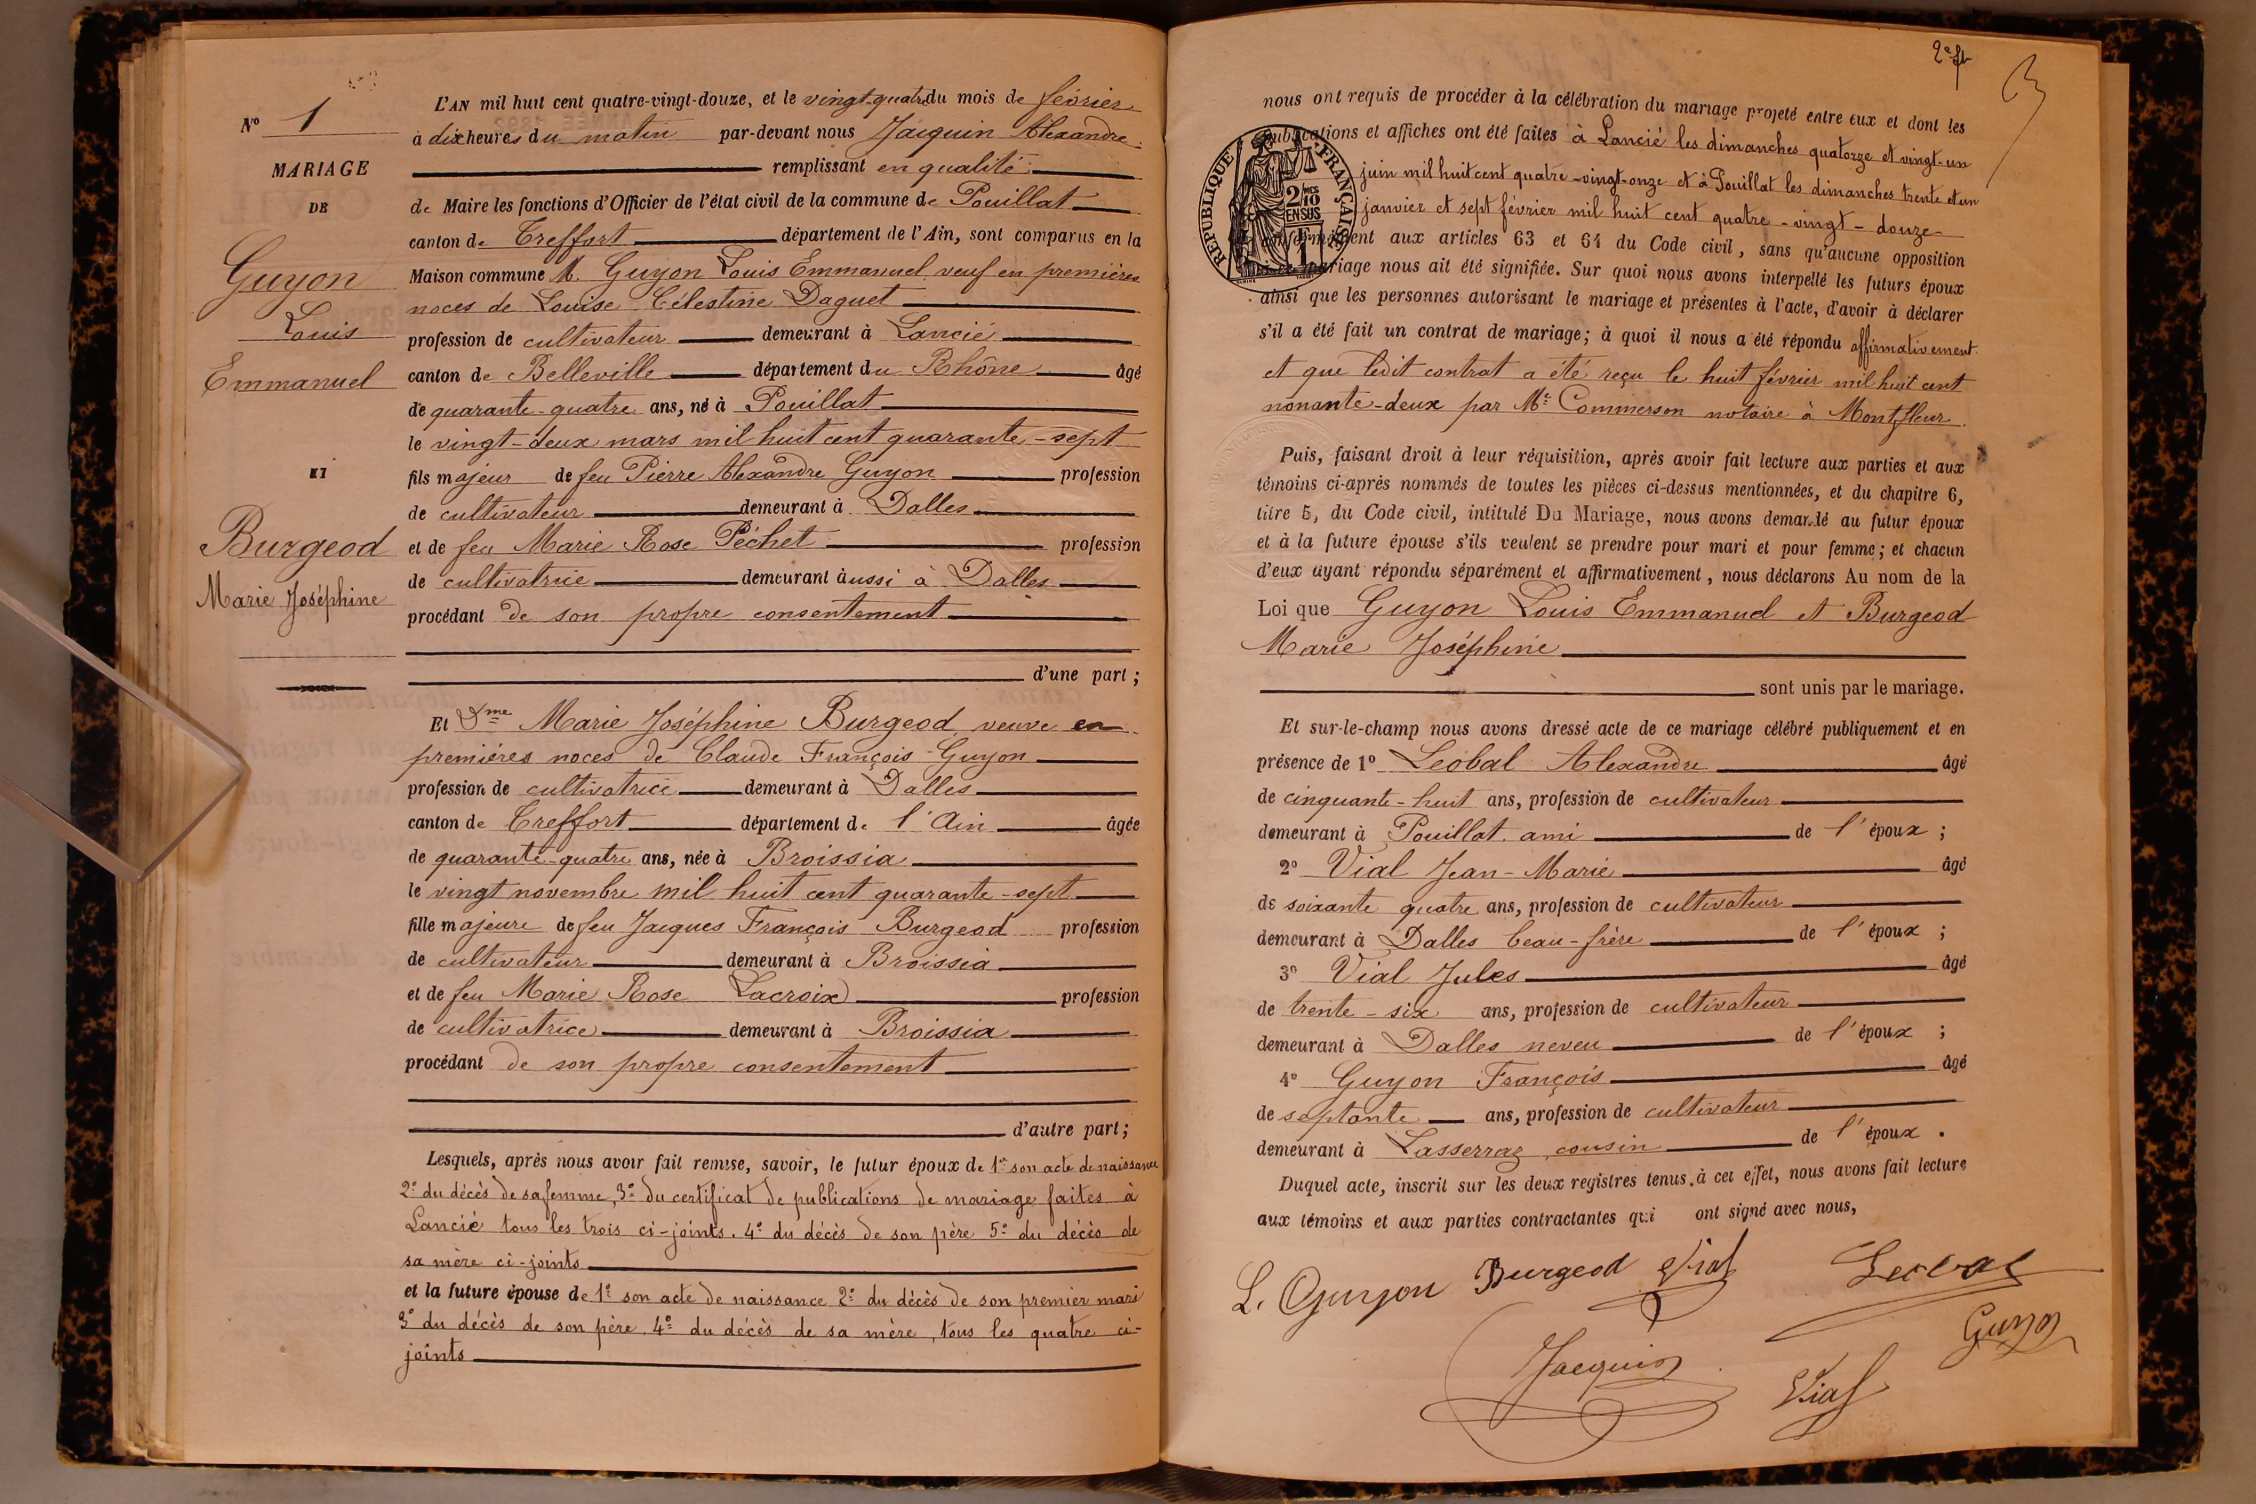 N° 1
MARIAGE
DE
Guyon
Louis
Emmanuel
ET
Burgeod
Marie Joséphine
L'AN mil huit cent quatre-vingt-douze, et le vingt-quatre du mois de février
à dix heures du matin par-devant nous Jacquin Alexandre
remplissant en qualité
de Maire les fonctions d'Officier de l'état civil de la commune de Pouillat
canton de Treffort département de l'Ain, sont comparus en la
Maison commune M. Guyon Louis Emmanuel veuf en premières
noces de Louise Célestine Daguet
profession de cultivateur demeurant à Lancié
canton de Belleville département du Rhône âgé
de quarante-quatre ans, né à Pouillat
le vingt-deux mars mil huit cent quarante-sept
fils majeur de feu Pierre Alexandre Guyon profession
de cultivateur demeurant à Dalles
et de feu Marie Rose Péchet profession
de cultivatrice demeurant aussi à Dalles
procédant de son propre consentement
d'une part ;
Et Dme Marie Joséphine Burgeod veuve en
premières noces de Claude François Guyon
profession de cultivatrice demeurant à Dalles
canton de Treffort département de l'Ain âgée
de quarante-quatre ans, née à Broissia
le vingt novembre mil huit cent quarante-sept
fille majeure de feu Jacques François Burgeod profession
de cultivateur demeurant à Broissia
et de feu Marie Rose Lacroix profession
de cultivatrice demeurant à Broissia
procédant de son propre consentement
d'autre part ;
Lesquels, après nous avoir fait remise, savoir, le futur époux de 1° son acte de naissance
2° du décès de sa femme, 3° du certificat de publications de mariage faites à
Lancié tous les trois ci-joints. 4° du décès de son père 5° du décès de
sa mère ci-joints
et la future épouse de 1° son acte de naissance 2° du décès de son premier mari
3° du décès de son père. 4° du décès de sa mère, tous les quatre ci-
joints
nous ont requis de procéder à la célébration du mariage projeté entre eux et dont les
publications et affiches ont été faites à Lancié les dimanches quatorze et vingt-un
juin mil huit cent quatre-vingt-onze et à Pouillat les dimanches trente et un
janvier et sept février mil huit cent quatre-vingt-douze
RÉPUBLIQUE FRANÇAISE
2/10 EN SUS
1 F
conformément aux articles 63 et 64 du Code civil, sans qu'aucune opposition
mariage nous ait été signifiée. Sur quoi nous avons interpellé les futurs époux
ainsi que les personnes autorisant le mariage et présentes à l'acte, d'avoir à déclarer
s'il a été fait un contrat de mariage ; à quoi il nous a été répondu affirmativement
et que ledit contrat a été reçu le huit février mil huit cent
nonante-deux par Me Commerson notaire à Montfleur.
Puis, faisant droit à leur réquisition, après avoir fait lecture aux parties et aux
témoins ci-après nommés de toutes les pièces ci-dessus mentionnées, et du chapitre 6,
titre 5, du Code civil, intitulé Du Mariage, nous avons demandé au futur époux
et à la future épouse s'ils veulent se prendre pour mari et pour femme ; et chacun
d'eux ayant répondu séparément et affirmativement, nous déclarons Au nom de la
Loi que Guyon Louis Emmanuel et Burgeod
Marie Joséphine
sont unis par le mariage.
Et sur-le-champ nous avons dressé acte de ce mariage célébré publiquement et en
présence de 1° Léobal Alexandre âgé
de cinquante-huit ans, profession de cultivateur
demeurant à Pouillat. ami de l'époux ;
2° Vial Jean-Marie âgé
de soixante quatre ans, profession de cultivateur
demeurant à Dalles beau-frère de l'époux ;
3° Vial Jules âgé
de trente-six ans, profession de cultivateur
demeurant à Dalles neveu de l'époux ;
4° Guyon François âgé
de septante ans, profession de cultivateur
demeurant à Lasserraz, cousin de l'époux.
Duquel acte, inscrit sur les deux registres tenus à cet effet, nous avons fait lecture
aux témoins et aux parties contractantes qui ont signé avec nous,
L. Guyon Burgeod Vial Leobal
Guyon
Jacquin Vial